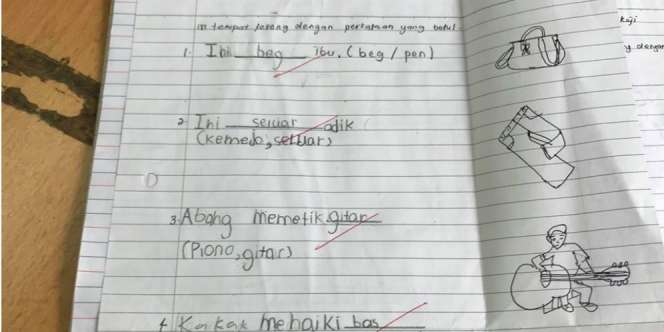 isi tempat kosong dengan perkataan yang betul
Kaji
y dengan
1. Ini beg ibu. (beg / pen)
2 Ini seluar adik
(Kemeja, seluar)
3. Abang memetik gitar
(Piano, gitar)
4 Kakak menaiki bas